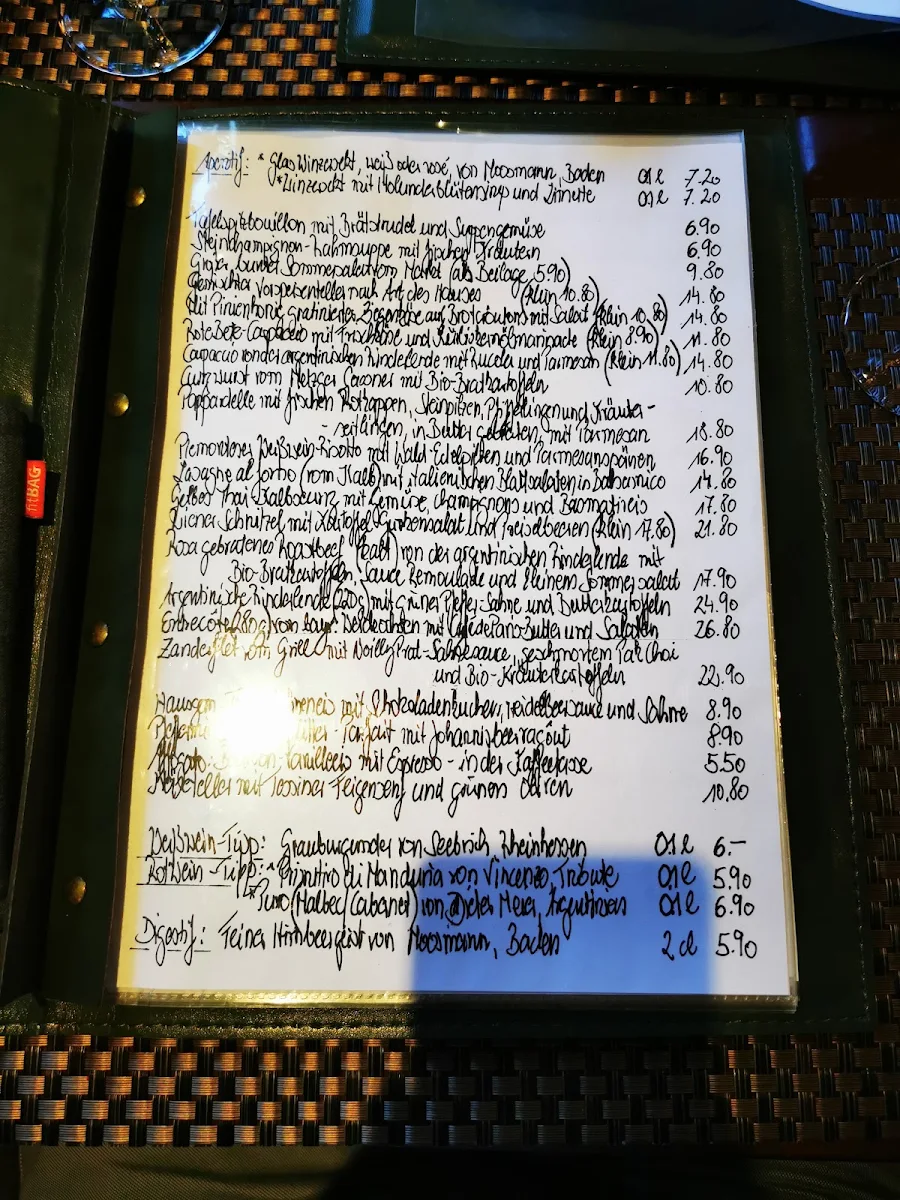 Aperitif: * Glas Winzersekt, weiß oder rosé, von Moosmann, Baden 0,1 l 7.20
* Winzersekt mit Holunderblütensirup und Limette 0,1 l 7.20
Tafelspitzbouillon mit Brätstrudel und Suppengemüse 6.90
Steinchampignon-Rahmsuppe mit frischen Kräutern 6.90
Großer bunter Sommersalat vom Markt (als Beilage 5.90) 9.80
Gemischter Vorspeisenteller nach Art des Hauses (klein 10.80) 14.80
Mit Pinienhonig gratinierter Ziegenkäse auf Brotcroutons mit Salat (klein 10.80) 14.80
Rote Bete-Carpaccio mit Frischkäse und Kürbiskernölmarinade (klein 8.90) 11.80
Carpaccio von der argentinischen Rinderlende mit Rucola und Parmesan (klein 11.80) 14.80
wurst vom Metzger mit Bio-Bratkartoffeln 10.80
Pappardelle mit frischen Rotkappen, Steinpilzen, Pfifferlingen und Kräuter-
- seitlingen, in Butter gebraten, mit Parmesan 18.80
Piemonteser Weißwein-Risotto mit Wald-Edelpilzen und Parmesanspänen 16.90
Lasagne al forno (vom Kalb) mit italienischen Blattsalaten in Balsamico 14.80
Gelbes Thai-Kalbscurry mit Gemüse, Champignons und Basmatireis 17.80
Wiener Schnitzel mit Kartoffel-Gurkensalat und Preiselbeeren (klein 17.80) 21.80
Rosa gebratenes Roastbeef (kalt) von der argentinischen Rinderlende mit
Bio-Bratkartoffeln, Sauce Remoulade und kleinem Sommersalat 17.90
Argentinische Rinderlende (220g) mit grüner Pfeffer-Sahne und Butterkartoffeln 24.90
Entrecôte (280g) vom bayr. Weideochsen mit Café de Paris-Butter und Salaten 26.80
Zanderfilet vom Grill mit Noilly Prat-Sahnesauce, geschmortem Pak Choi
und Bio-Kräuterkartoffeln 22.90
Hausgem mit Schokoladenkuchen, Heidelbeersauce und Sahne 8.90
Pfeffermi -Parfait mit Johannisbeerragout 8.90
Affogato: Vanilleeis mit Espresso - in der Kaffeetasse 5.50
Käseteller mit Tessiner Feigensenf und grünen Oliven 10.80
Weißwein-Tipp: Grauburgunder von Seebrich, Rheinhessen 0,1 l 6.–
Rotwein-Tipp: * Primitivo di Manduria von Vincenzo Tribute 0,1 l 5.90
* Puro (Malbec/Cabernet) von Dieter Meier, Argentinien 0,1 l 6.90
Digestif: Feiner Himbeergeist von Moosmann, Baden 2 cl 5.90
fitBAG